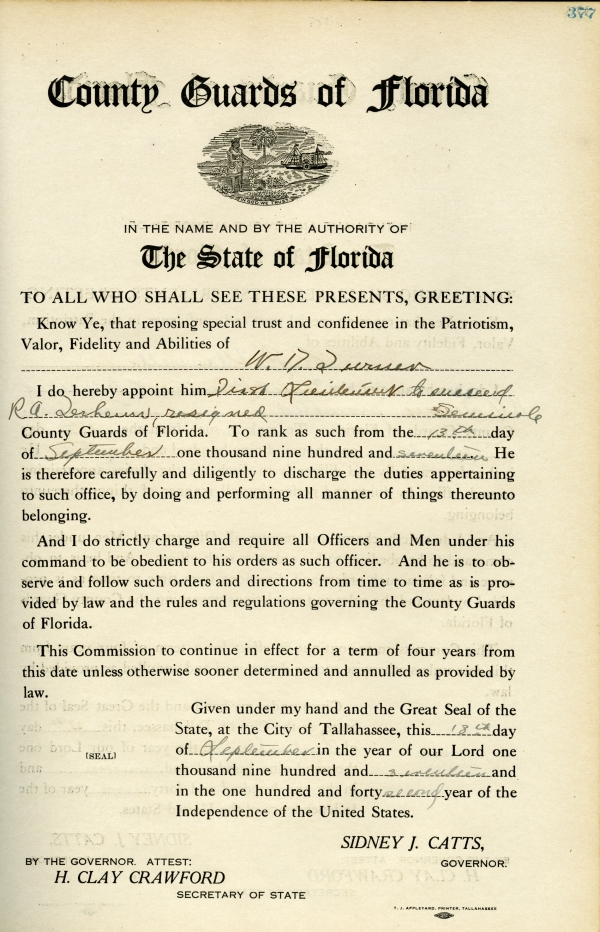 377
County Guards of Florida
IN GOD WE TRUST
IN THE NAME AND BY THE AUTHORITY OF
The State of Florida
TO ALL WHO SHALL SEE THESE PRESENTS, GREETING:
Know Ye, that reposing special trust and confidence in the Patriotism,
Valor, Fidelity and Abilities of
W. D. Turner
I do hereby appoint him First Lieutenant to succeed
R. A. resigned Seminole
County Guards of Florida. To rank as such from the 13th day
of September one thousand nine hundred and seventeen He
is therefore carefully and diligently to discharge the duties appertaining
to such office, by doing and performing all manner of things thereunto
belonging.
And I do strictly charge and require all Officers and Men under his
command to be obedient to his orders as such officer. And he is to ob-
serve and follow such orders and directions from time to time as is pro-
vided by law and the rules and regulations governing the County Guards
of Florida.
This Commission to continue in effect for a term of four years from
this date unless otherwise sooner determined and annulled as provided by
law.
Given under my hand and the Great Seal of the
State, at the City of Tallahassee, this 18th day
of September in the year of our Lord one
(SEAL)
thousand nine hundred and seventeen and
in the one hundred and forty second year of the
Independence of the United States.
SIDNEY J. CATTS,
BY THE GOVERNOR. ATTEST: GOVERNOR.
H. CLAY CRAWFORD
SECRETARY OF STATE
T. J. APPLEYARD, PRINTER, TALLAHASSEE